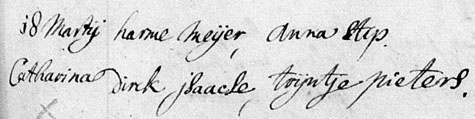 18 Martij harme Meijer, Anna Stip.
Catharina Dirck jsaacse, trijntje pieters.